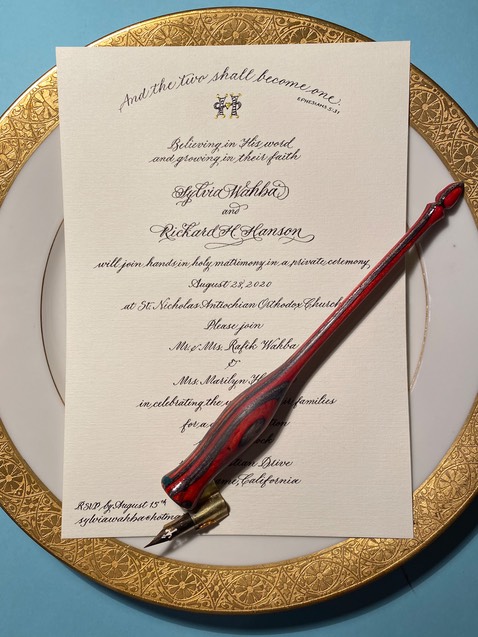 And the two shall become one.
EPHESIANS 5:31
Believing in His word
and growing in their faith
Sylvia Wahba
and
Richard H Hanson
will join hands in holy matrimony in a private ceremony
August 28, 2020
at St. Nicholas Antiochian Orthodox Church
Please join
Mr. & Mrs. Rafik Wahba
&
Mrs. Marilyn H
in celebrating the families
for a
Drive
California
RSVP by August 15th
sylviawahba@hotma